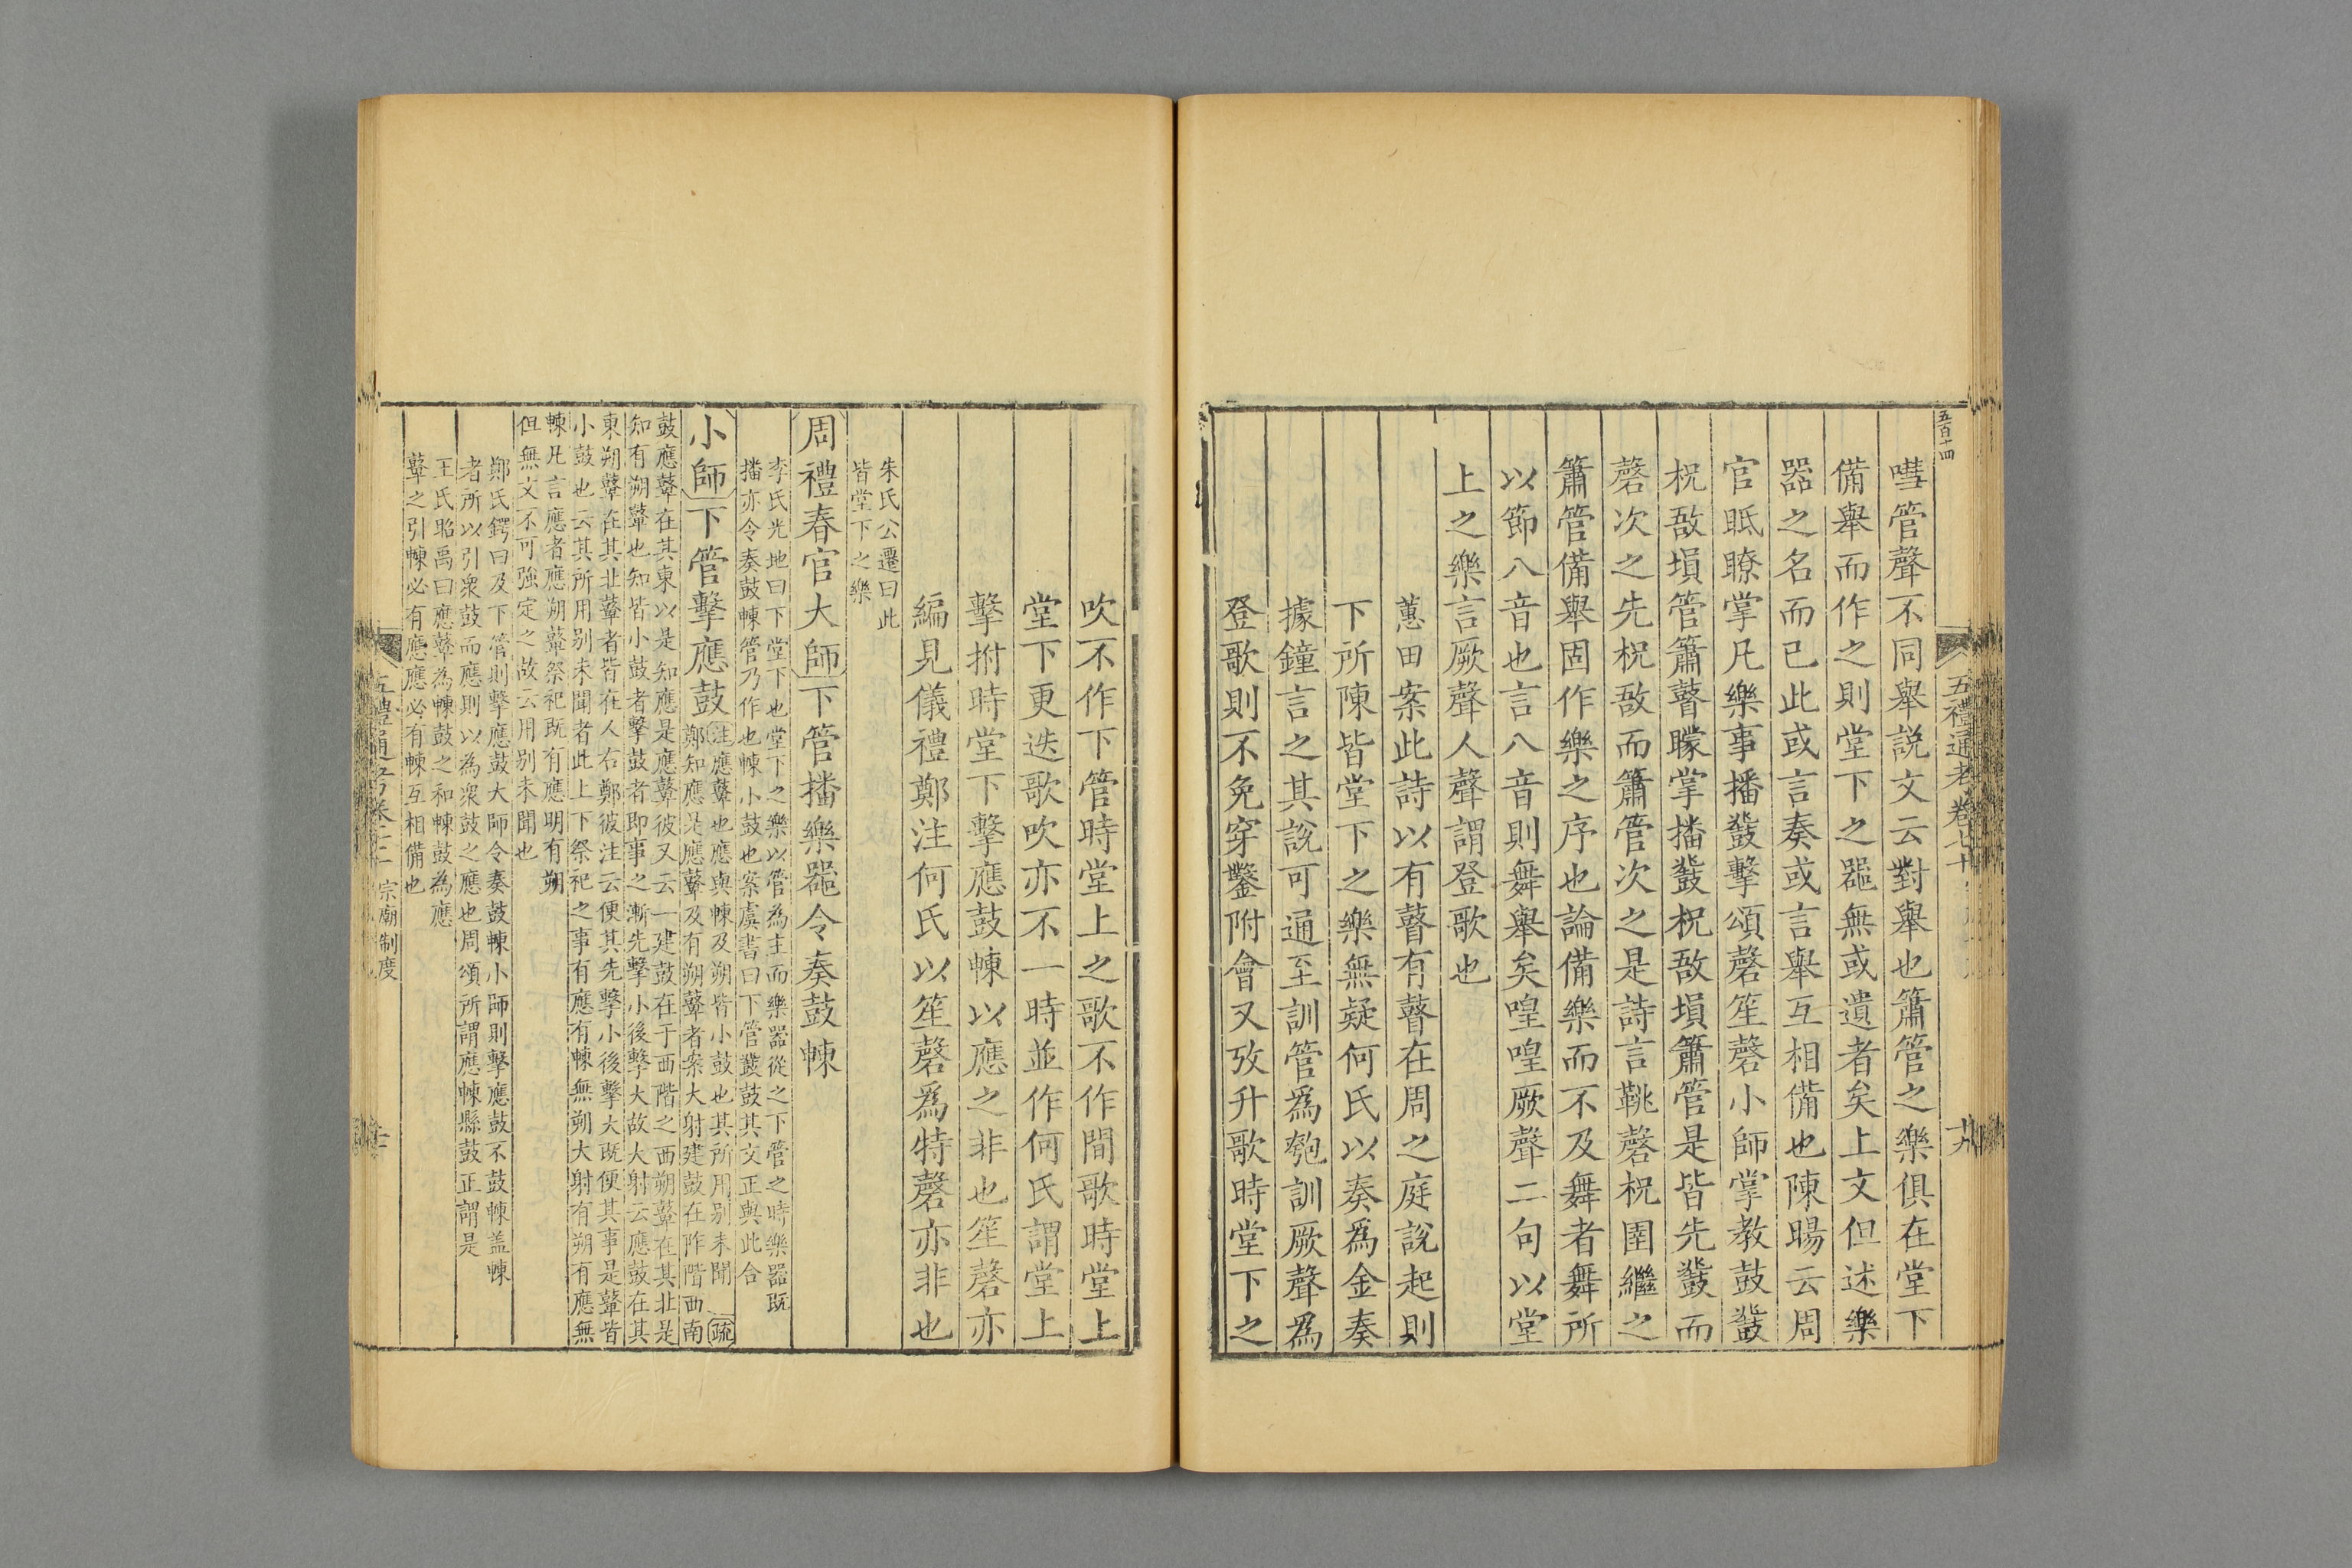 五百十四
五禮通考卷七十
九
嘒管聲不同舉説文云對舉也簫管之樂俱在堂下
備舉而作之則堂下之器無或遺者矣上文但述樂
器之名而已此或言奏或言舉互相備也陳暘云周
官眡瞭掌凡樂事播鼗擊頌磬笙磬小師掌教鼓鼗
柷敔塤管簫瞽矇掌播鼗柷敔塤簫管是皆先鼗而
磬次之先柷敔而簫管次之是詩言鞉磬柷圉繼之
簫管備舉固作樂之序也論備樂而不及舞者舞所
以節八音也言八音則舞舉矣喤喤厥聲二句以堂
上之樂言厥聲人聲謂登歌也
蕙田案此詩以有瞽有瞽在周之庭說起則
下所陳皆堂下之樂無疑何氏以奏爲金奏
據鐘言之其說可通至訓管爲匏訓厥聲爲
登歌則不免穿鑿附會又攷升歌時堂下之
吹不作下管時堂上之歌不作間歌時堂上
堂下更迭歌吹亦不一時並作何氏謂堂上
擊拊時堂下擊應鼓朄以應之非也笙磬亦
編見儀禮鄭注何氏以笙磬爲特磬亦非也
朱氏公遷曰此
皆堂下之樂
周禮春官大師下管播樂器令奏鼓朄
李氏光地曰下堂下也堂下之樂以管為主而樂器從之下管之時樂器既
播亦令奏鼓朄管乃作也朄小鼓也案虞書曰下管鼗鼓其文正與此合
小師下管擊應鼓
注應鼙也應與朄及朔皆小鼓也其所用别未聞 疏
鄭知應是應鼙及有朔鼙者案大射建鼓在阼階西南
鼓應鼙在其東以是知應是應鼙彼又云一建鼓在于西階之西朔鼙在其北是
知有朔鼙也知皆小鼓者擊鼓者即事之漸先擊小後擊大故大射云應鼓在其
東朔鼙在其北鼙者皆在人右鄭彼注云便其先擊小後擊大既便其事是鼙皆
小鼓也云其所用别未聞者此上下祭祀之事有應有朄無朔大射有朔有應無
朄凡言應者應朔鼙祭祀既有應明有朔
但無文不可強定之故云用别未聞也
鄭氏鍔曰及下管則擊應鼓大師令奏鼓朄小師則擊應鼓不鼓朄盖朄
者所以引衆鼓而應則以為衆鼓之應也周頌所謂應朄縣鼓正謂是
王氏昭禹曰應鼙為朄鼓之和朄鼓為應
鼙之引朄必有應應必有朄互相備也
宗廟制度